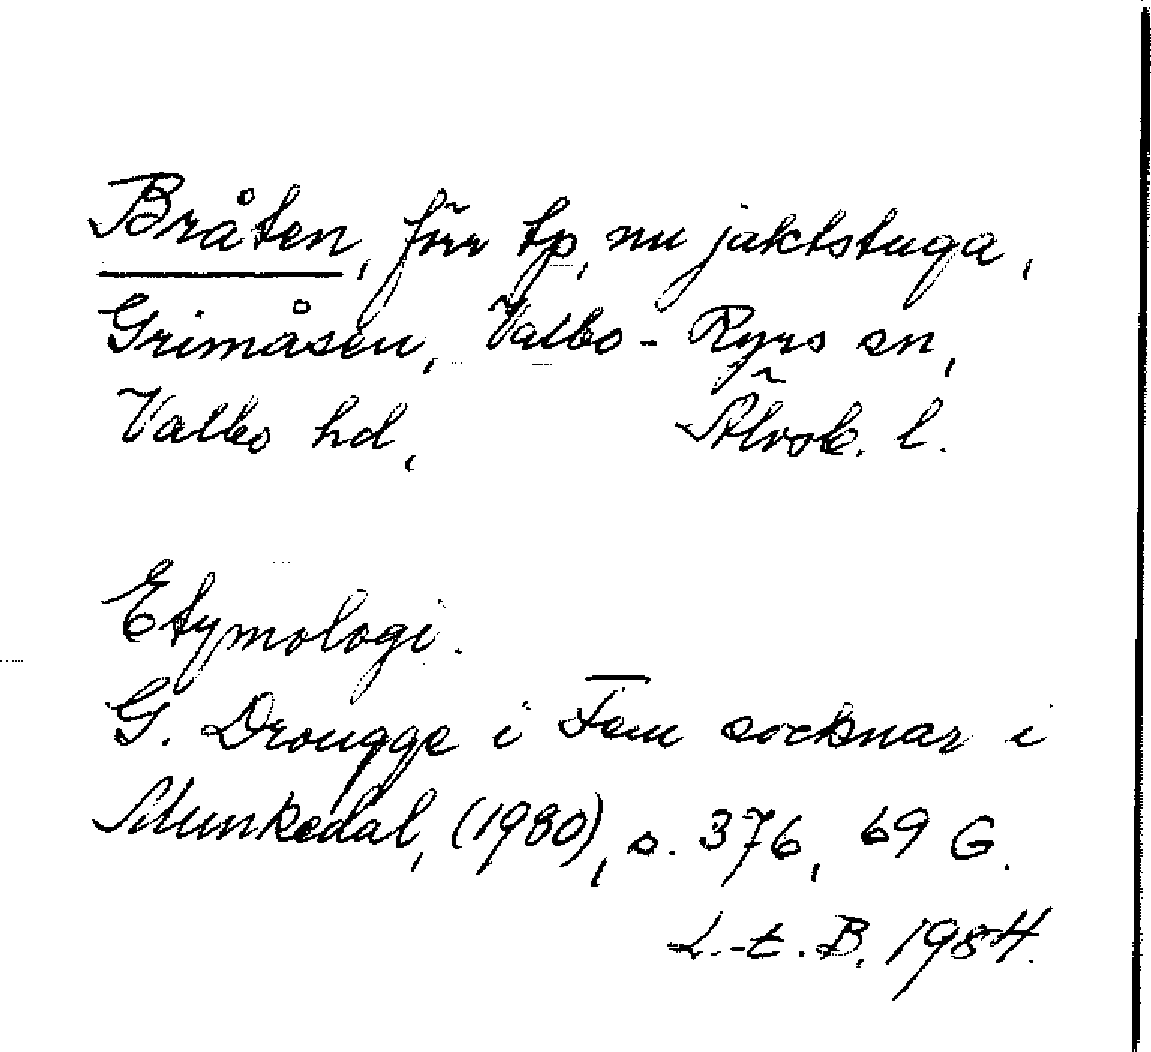 Bråten, förr tp, nu jaktstuga,
Grimåsen, Valbo-Ryrs sn,
Valbo hd, Älvsb. l.
Etymologi.
G. Drougge i Fem socknar i
Munkedal, (1980), s. 376, 69 G.
L.-E. B. 1984.